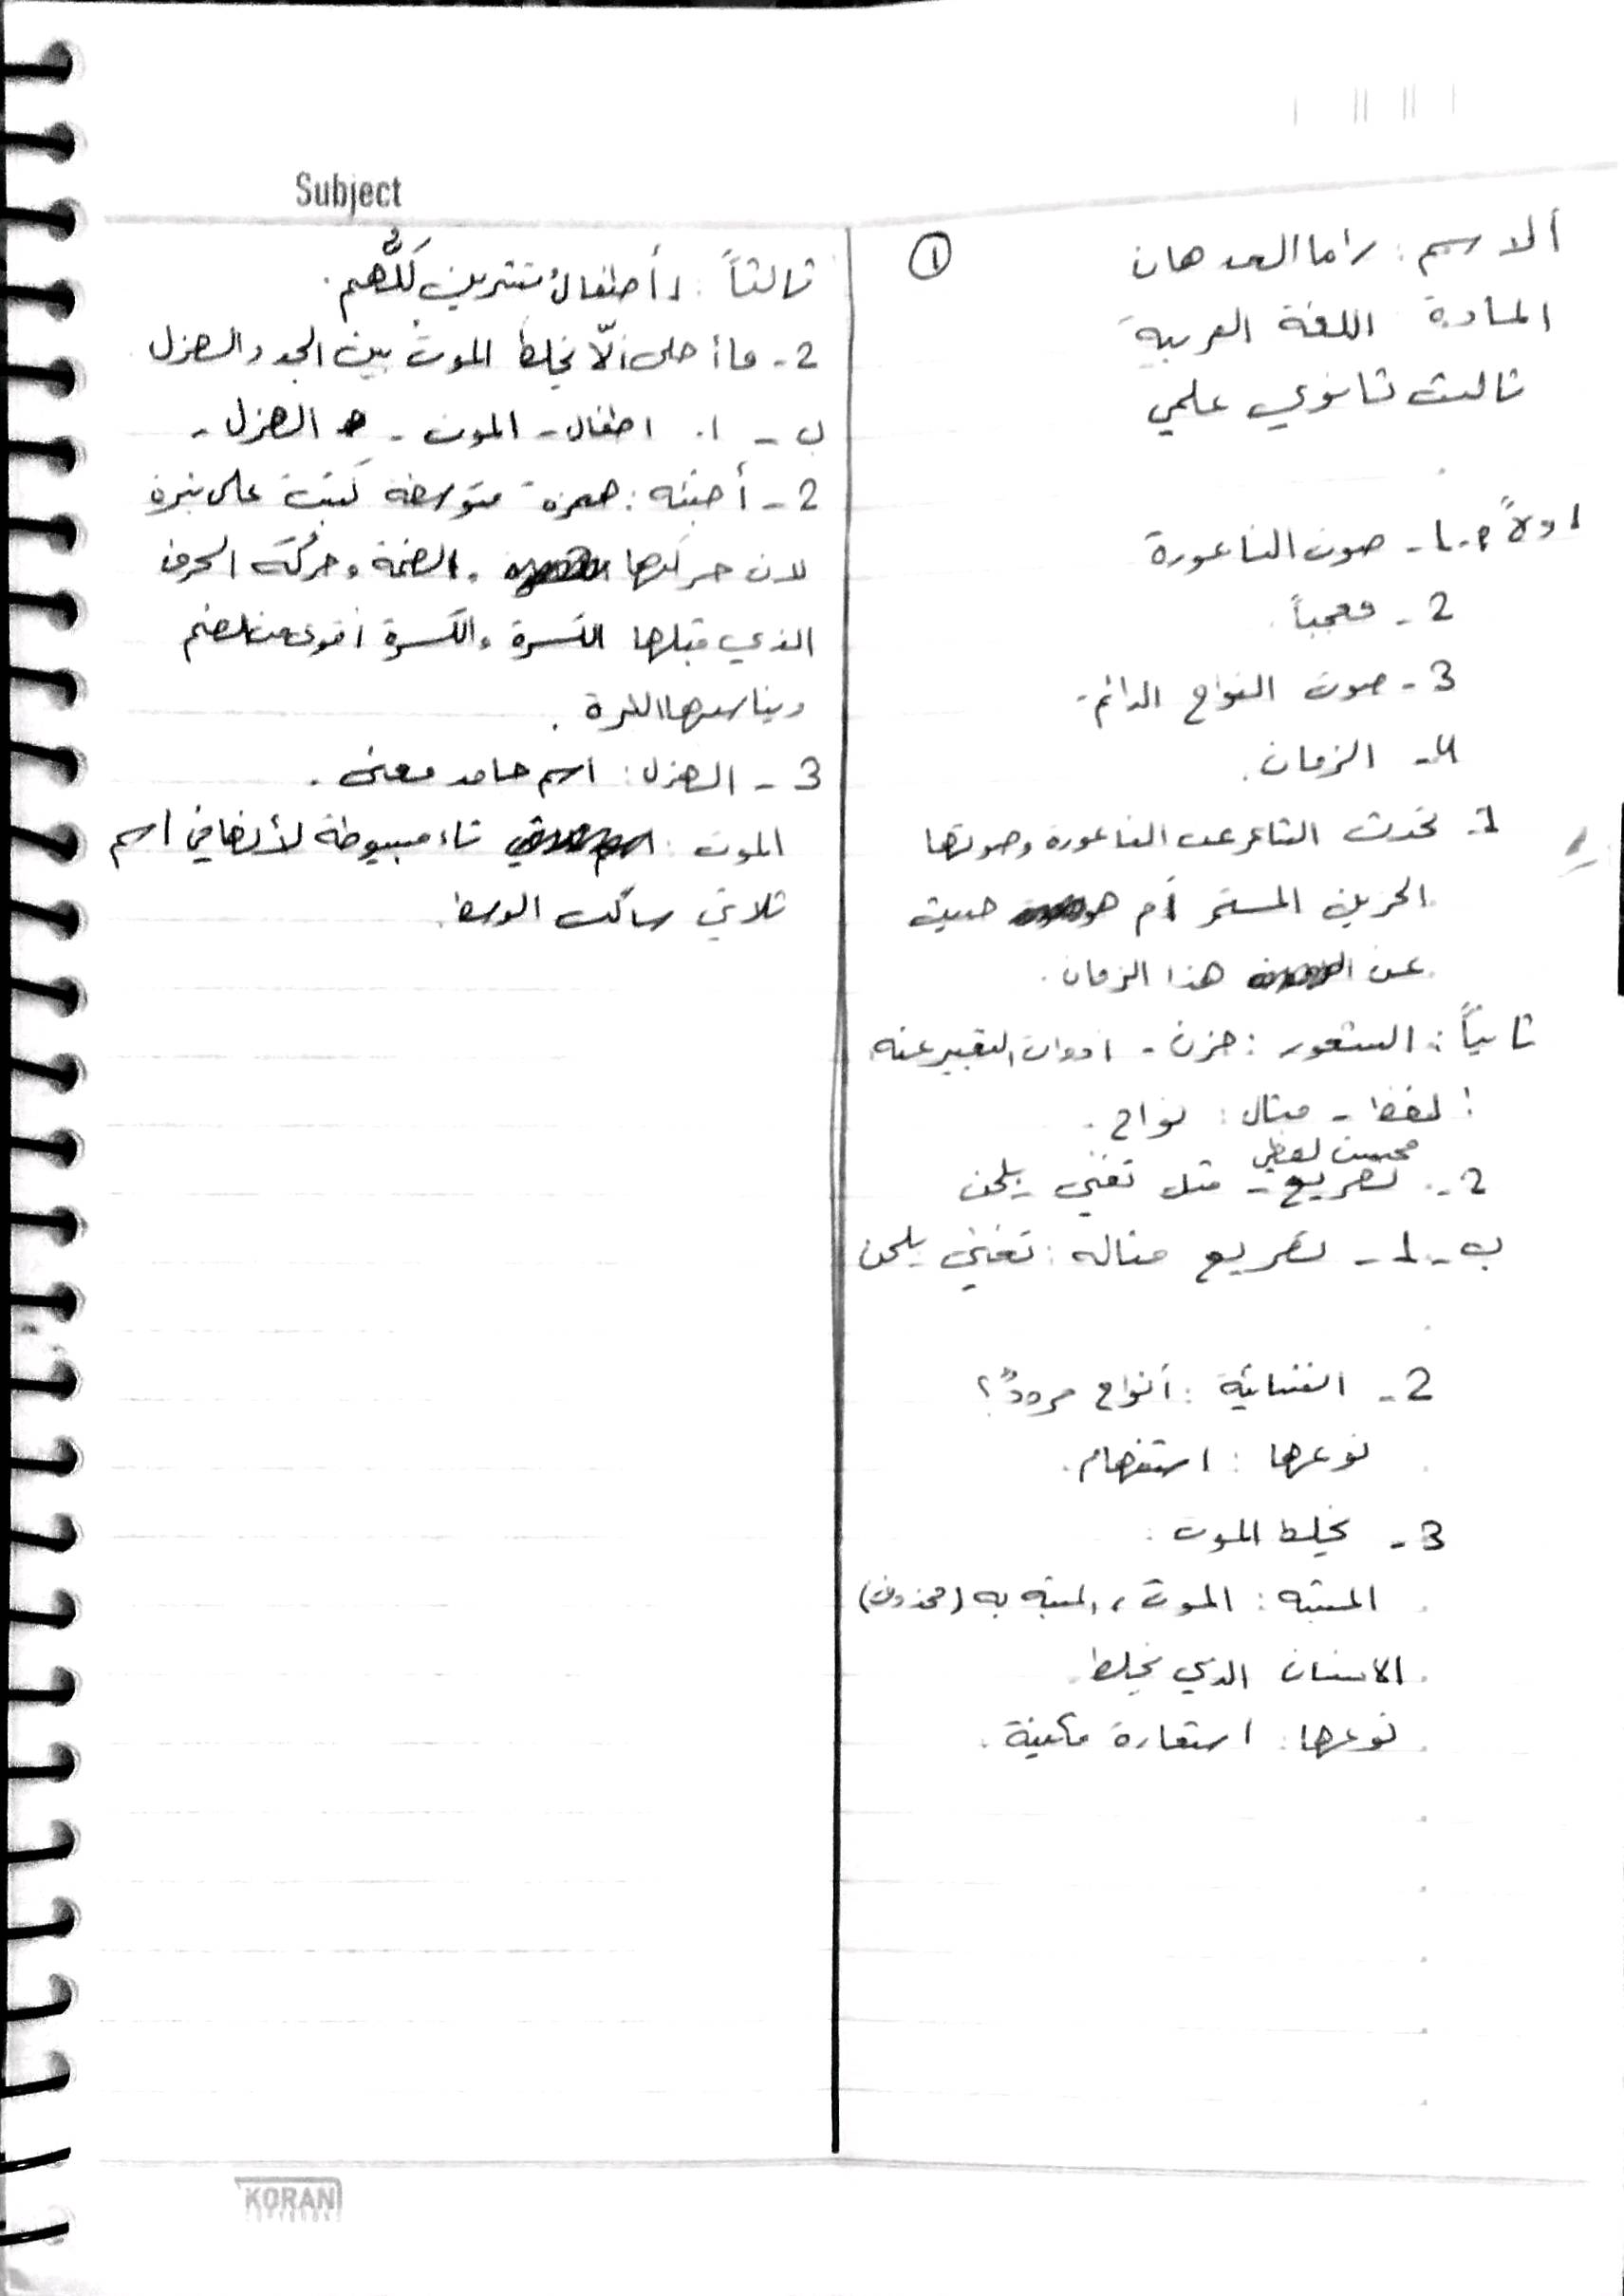 Subject
①
الاسم : راما العدهان
المادة اللغة العربية
ثالث ثانوي علمي
اولاً 1- صوت الناعورة
2- معجباً.
3- صوت النواح الدائم.
4- الزمان.
1- تحدث الشاعر عن الناعورة وصوتها
الحزين المستمر حيث
عن هذا الزمان.
ثانياً : الشعور : حزن - ادوات التعبير عنه
لفظ - مثال : نواح.
محسن لفظي
2- تصريع - مثل تغني يلحن
ب - 1- تصريع مثاله : تغني يلحن
2- انشائية : أنواح مردودٌ؟
نوعها : استفهام.
3- يخلط الموت :
المشبه : الموت، المشبه به (محذوف)
الانسان الذي يخلط.
نوعها : استعارة مكنية.
ثالثاً : أ أطفالُ تشرين كلُّهم.
2- ما أحلى ألّا يخلط الموت بين الجد والهزل
ب - 1. اطفال - الموت - الهزل -
2- : همزة متوسطة كتبت على نبرة
لان حركتها الضمة وحركة الحرف
الذي قبلها الكسرة والكسرة اقوى من الضم
ويناسبها النبرة.
3- الهزل : اسم جامد معنى.
الموت : تاء مبسوطة لأنها في اسم
ثلاثي ساكن الوسط.
KORAN